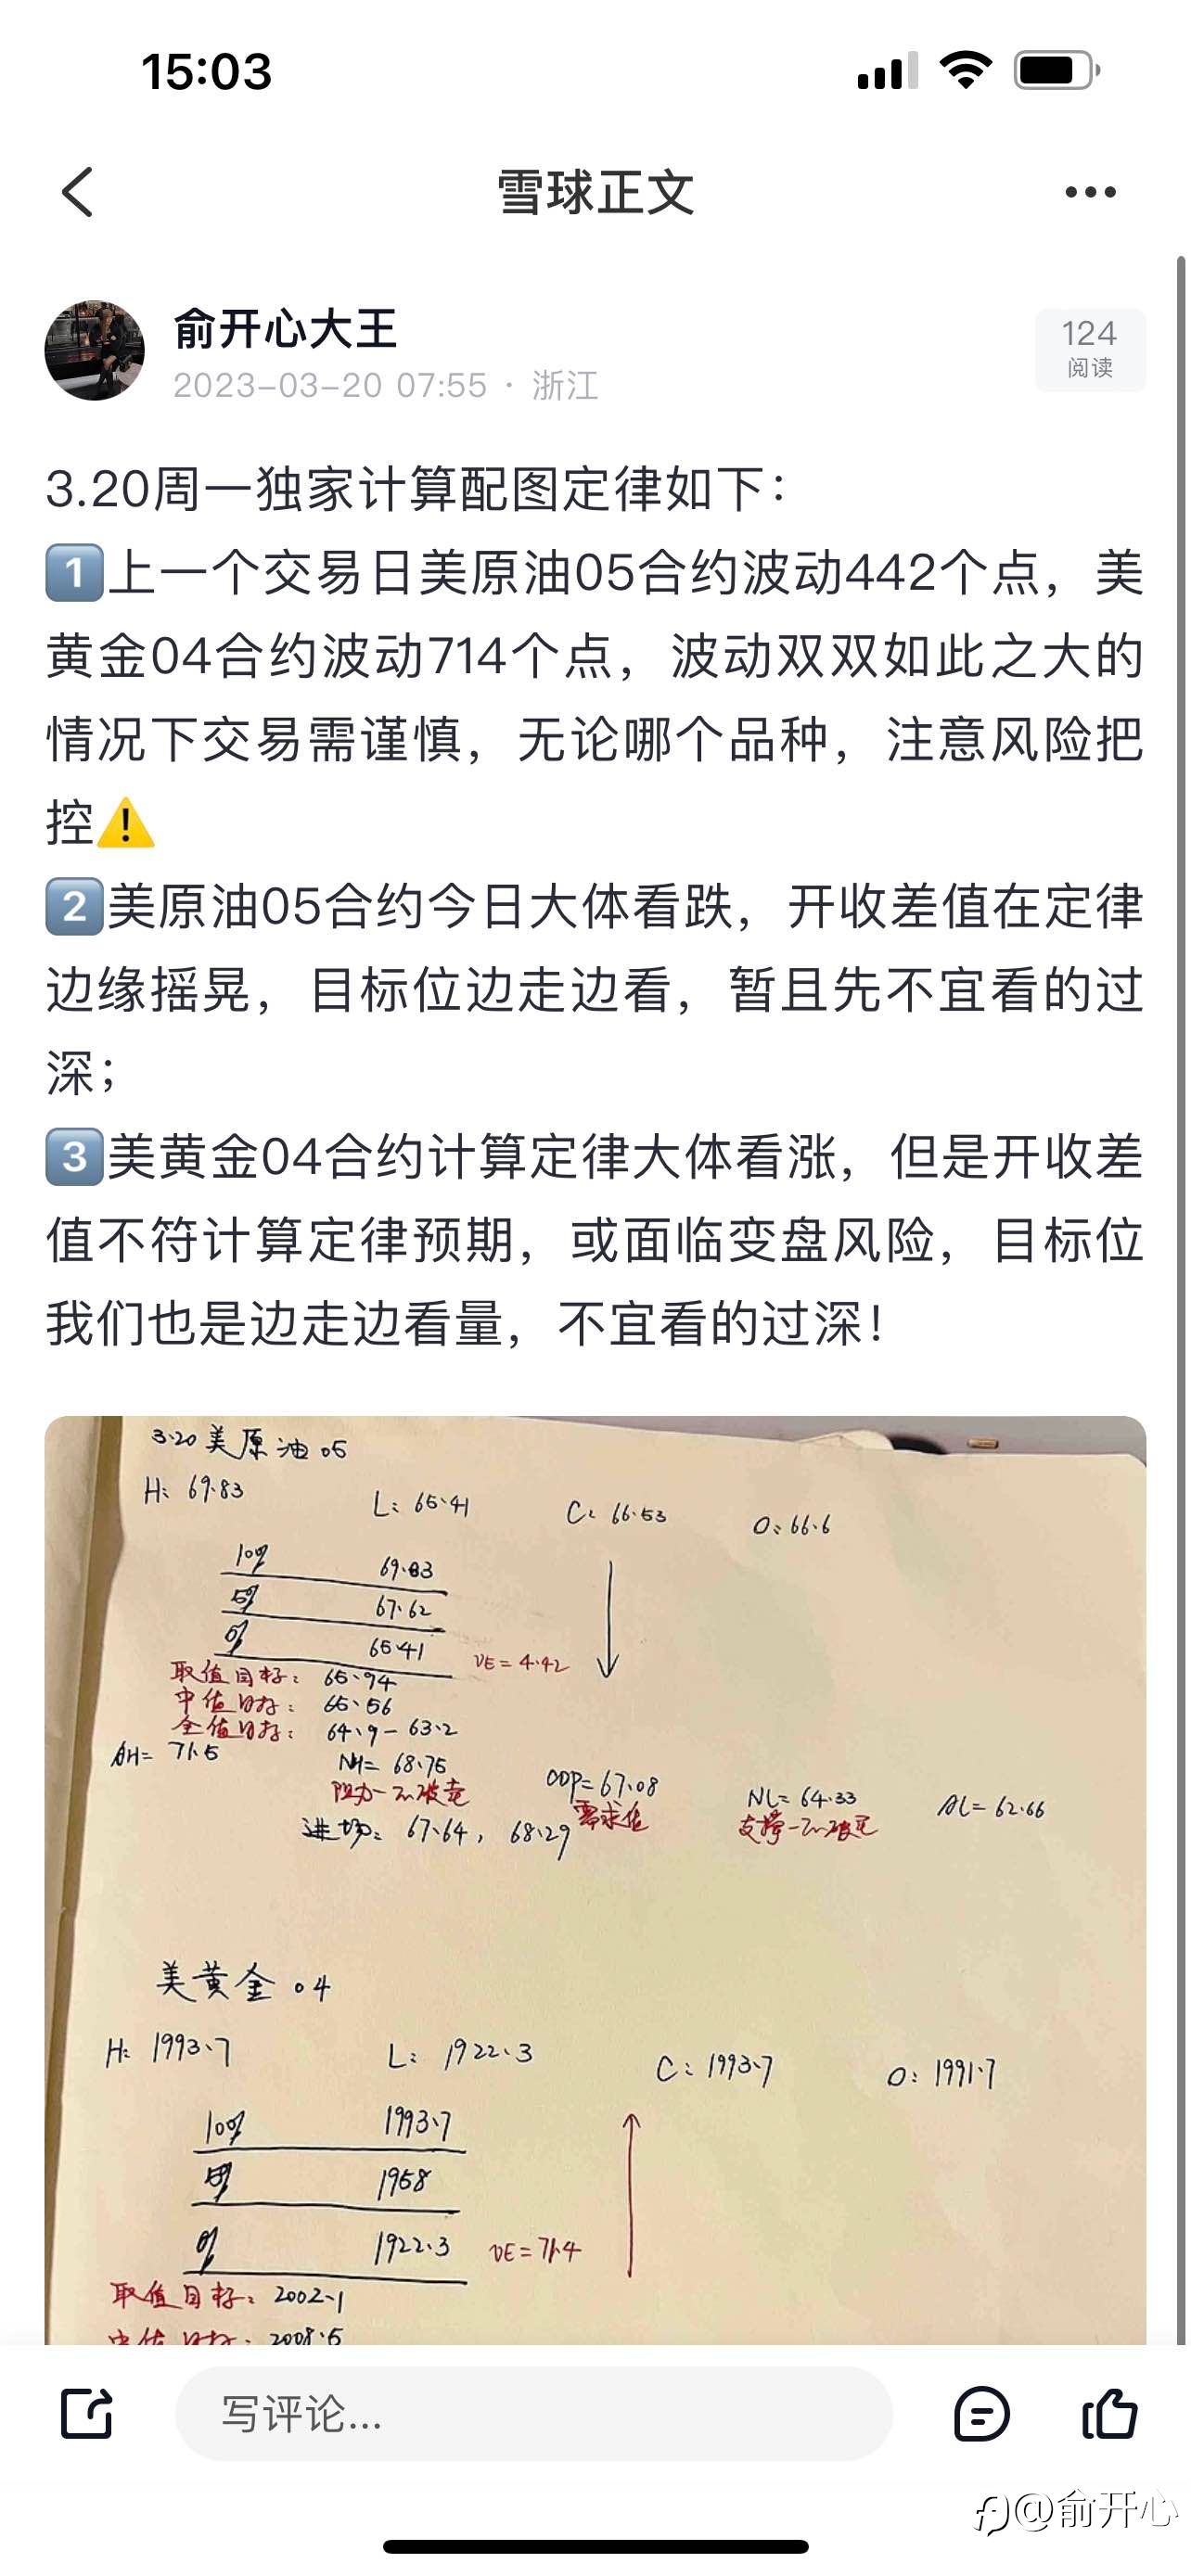 15:03
雪球正文
俞开心大王
2023-03-20 07:55 · 浙江
124
阅读
3.20周一独家计算配图定律如下：
1️⃣上一个交易日美原油05合约波动442个点，美
黄金04合约波动714个点，波动双双如此之大的
情况下交易需谨慎，无论哪个品种，注意风险把
控⚠️
2️⃣美原油05合约今日大体看跌，开收差值在定律
边缘摇晃，目标位边走边看，暂且先不宜看的过
深；
3️⃣美黄金04合约计算定律大体看涨，但是开收差
值不符计算定律预期，或面临变盘风险，目标位
我们也是边走边看量，不宜看的过深！
3.20 美原油 05
H: 69.83 L: 65.41 C: 66.53 O: 66.6
100% 69.83
50% 67.62
0% 65.41 VE=4.42
取值目标: 65.94
中值目标: 65.56
全值目标: 64.9-63.2
AH= 71.5 NH= 68.75 CDP=67.08 NL= 64.33 AL= 62.66
阻力 需求值 支撑
进场: 67.64, 68.29
美黄金 04
H: 1993.7 L: 1922.3 C: 1993.7 O: 1991.7
100% 1993.7
50% 1958
0% 1922.3 VE=71.4
取值目标: 2002.1
中值目标: 2008.5
写评论...
@俞开心